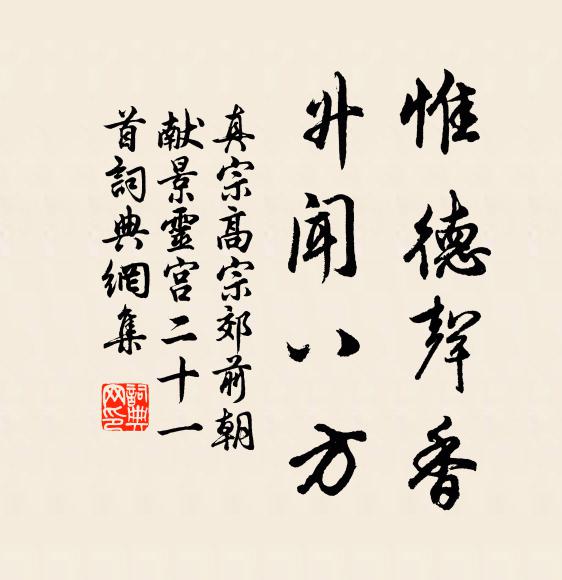 惟德聲香
升闻八方
真宗高宗郊前朝
献景靈宫二十一
首詞典網集
詞典
网印